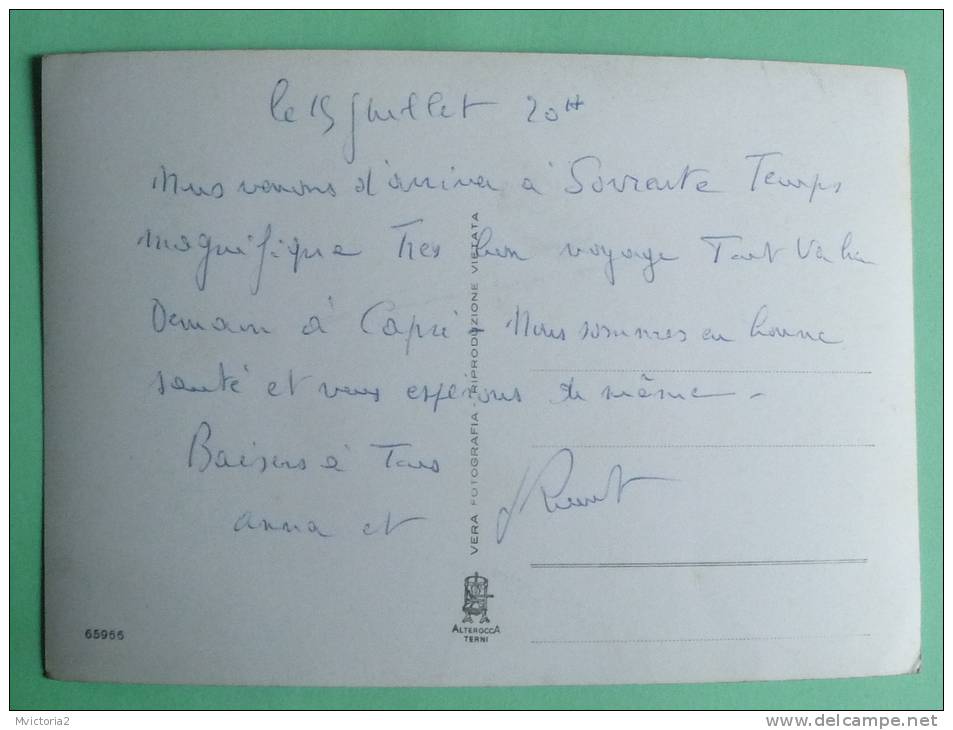 le 15 Juillet 20H
Nous venons d'arriver à Sorrente Temps
magnifique Tres bon voyage Tout va bien
Demain à Capri - Nous sommes en bonne
santé et vous espérons de même -
Baisers à Tous
anna et
VERA FOTOGRAFIA - RIPRODUZIONE VIETATA
ALTEROCCA
TERNI
65966
Mvictoria2
www.delcampe.net